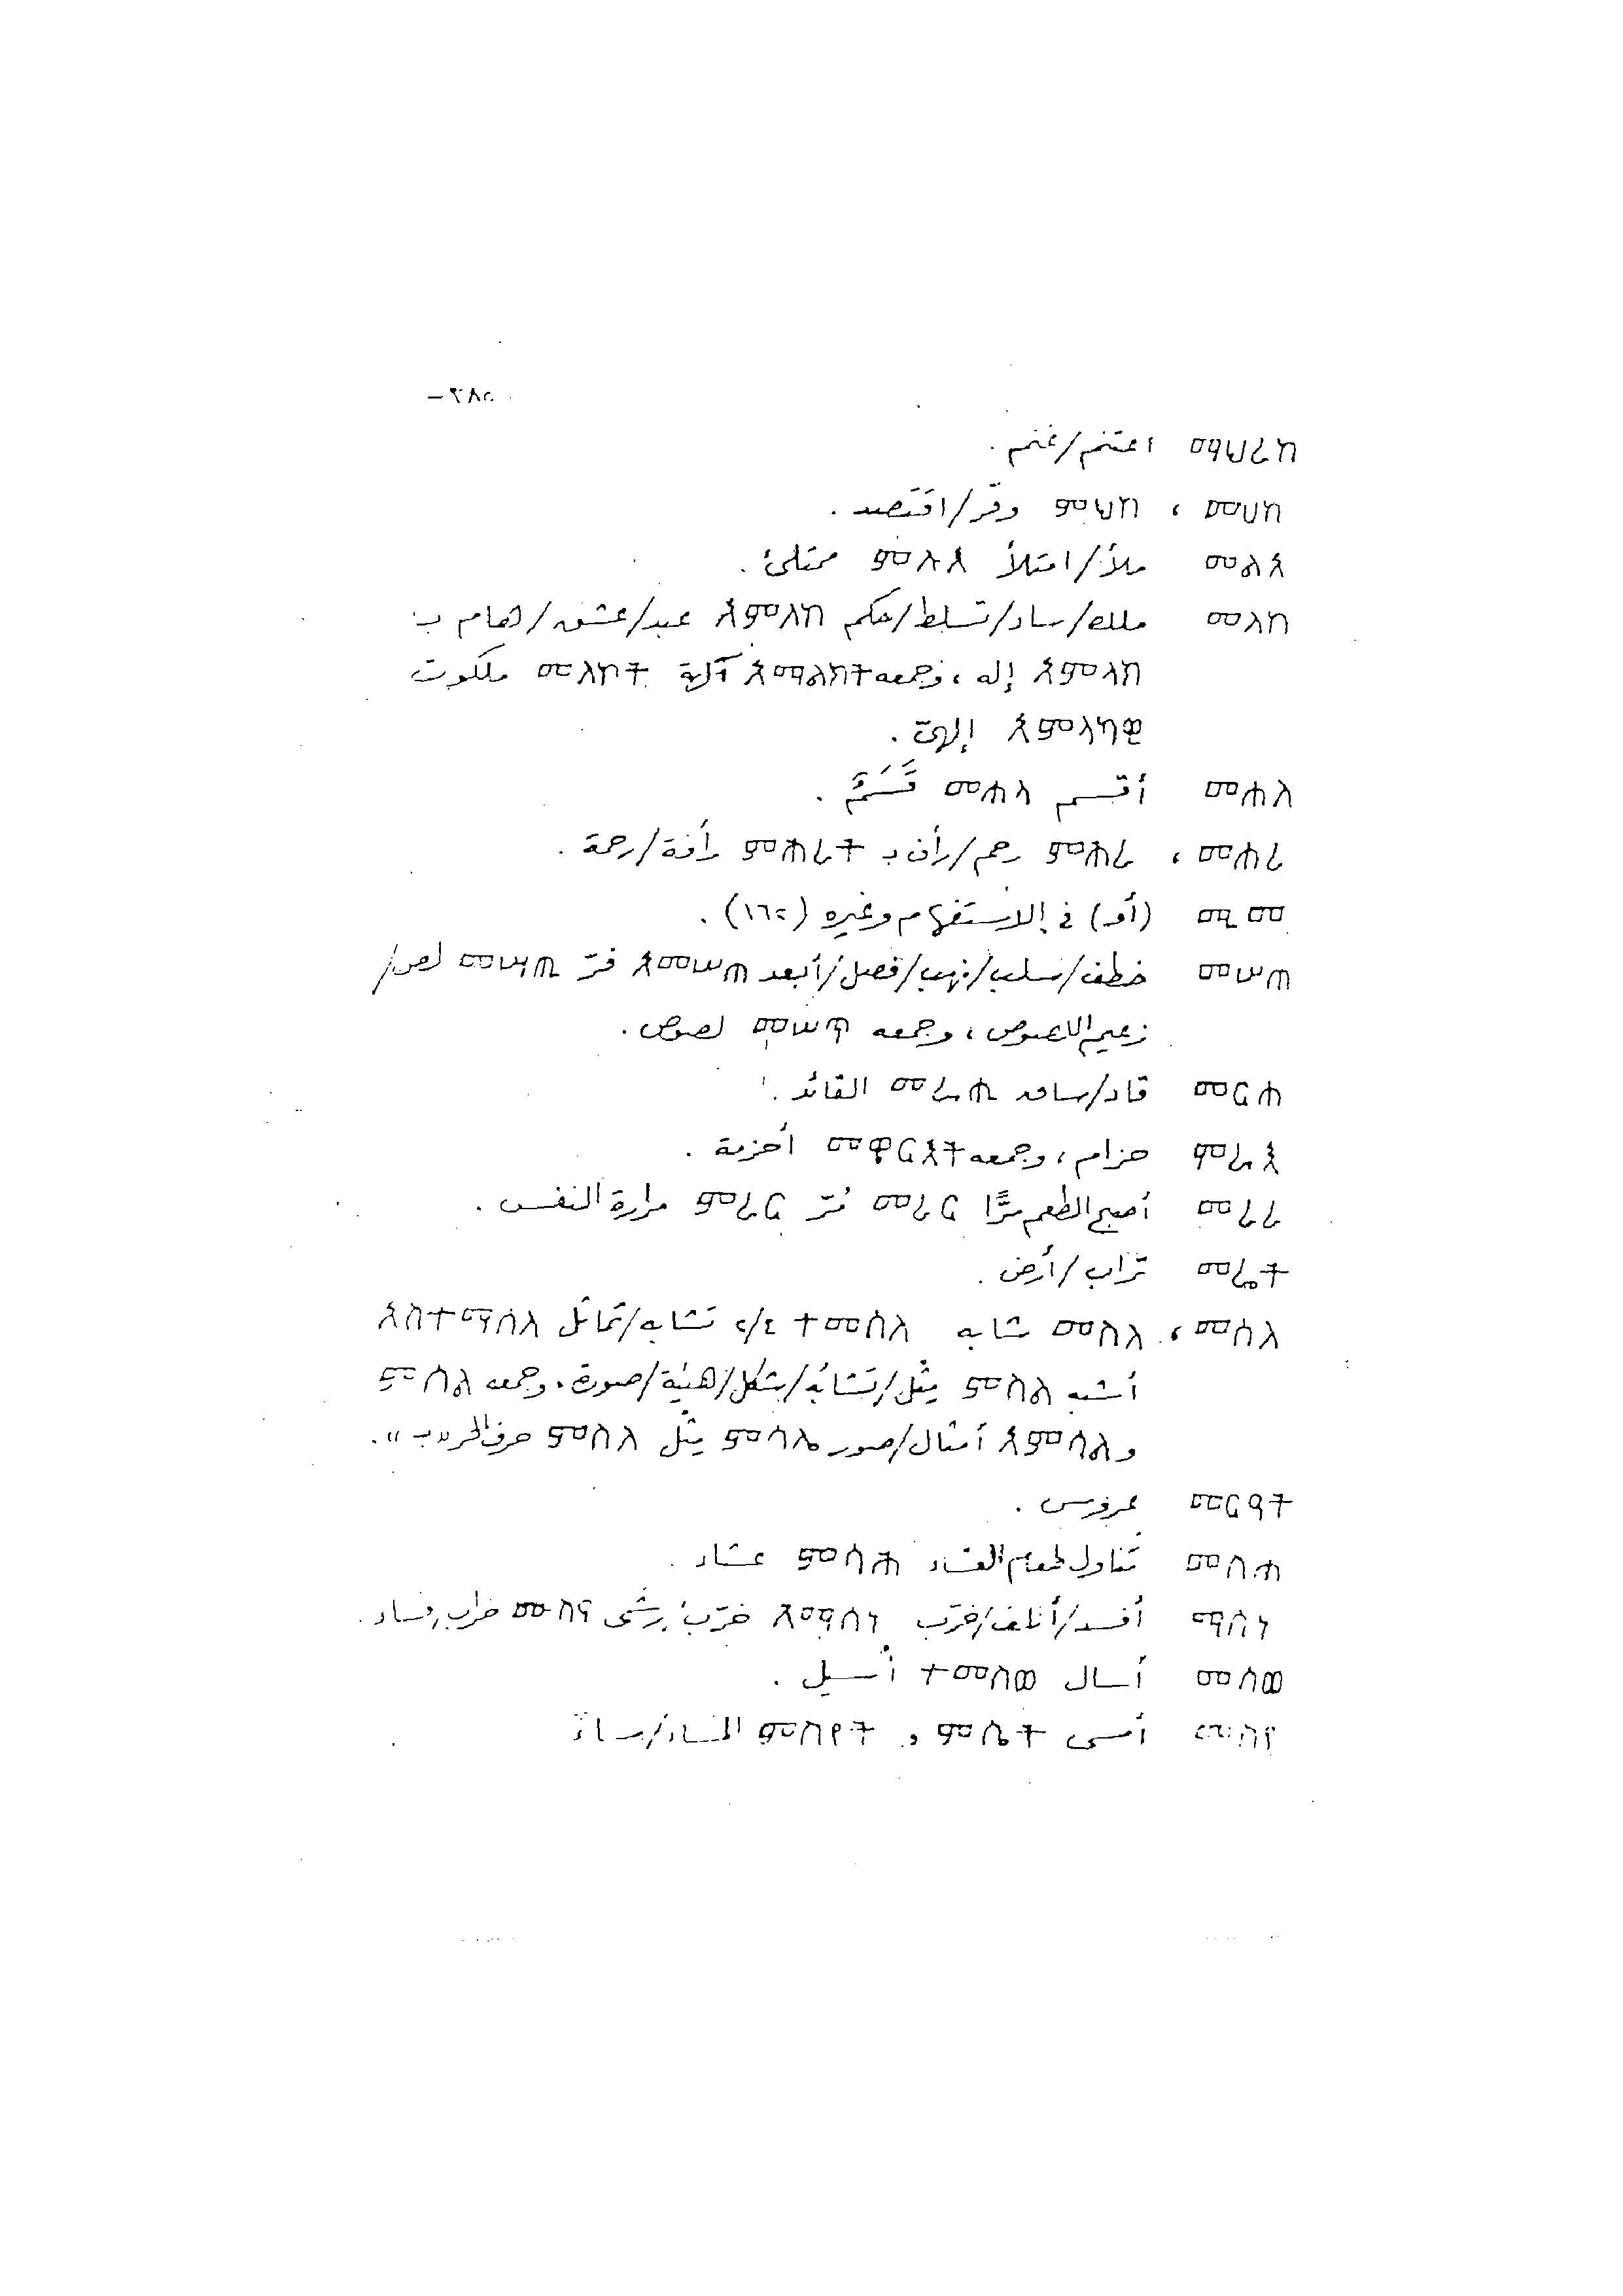 -٢٨٥
ማህረከ اغتنم/غنم .
መሀከ ، ምህከ وفّر/اقتصد .
መልአ ملأ/امتلأ ምልአ ممتلئ .
መለከ ملك/ساد/تسلط/حكم አምለከ عبد/عشق/هام ب
አምላክ إله ، وجمعه አማልክት آلهة መለኮት ملكوت
إلهيّ .
መሐለ أقسم መሐላ قَسَمٌ .
መሐረ ، ምሕረ رحم/رأف بـ ምሕረት رأفة/رحمة .
ሚመ (أو) في الاستفهام وغيره (١٦٥) .
መሠጠ خطف/سلب/نهب/فصل/أبعد አመሠጠ فرّ መሣጢ لص/
زعيم اللصوص ، وجمعه لصوص .
መርሐ قاد/ساق መራሒ القائد .
حزام ، وجمعه أحزمة .
መረረ أصبح الطعم مرًّا መሪር مُرّ ምረር مرارة النفس .
መሬት تراب/أرض .
መሰለ ، መሰለ شابه ተመሰለ تشابه/تماثل አስተማሰለ
أشبه ምስል مثل/تشابه/شكل/هيئة/صورة . وجمعه ምስል
و አምሳል أمثال/صور ምሳሌ مثل ምስለ حرف الجر «ب» .
መርዓት عروس .
መስሐ تناول طعام العشاء ምሳሕ عشاء .
ማሰነ أفسد/أتلف/خرّب አማሰነ خرّب/رشى ሙስና خراب/فساد .
መሰወ أسال ተመስወ أسيل .
መስየ أمسى ምሴት و ምስየት المساء/مساءً